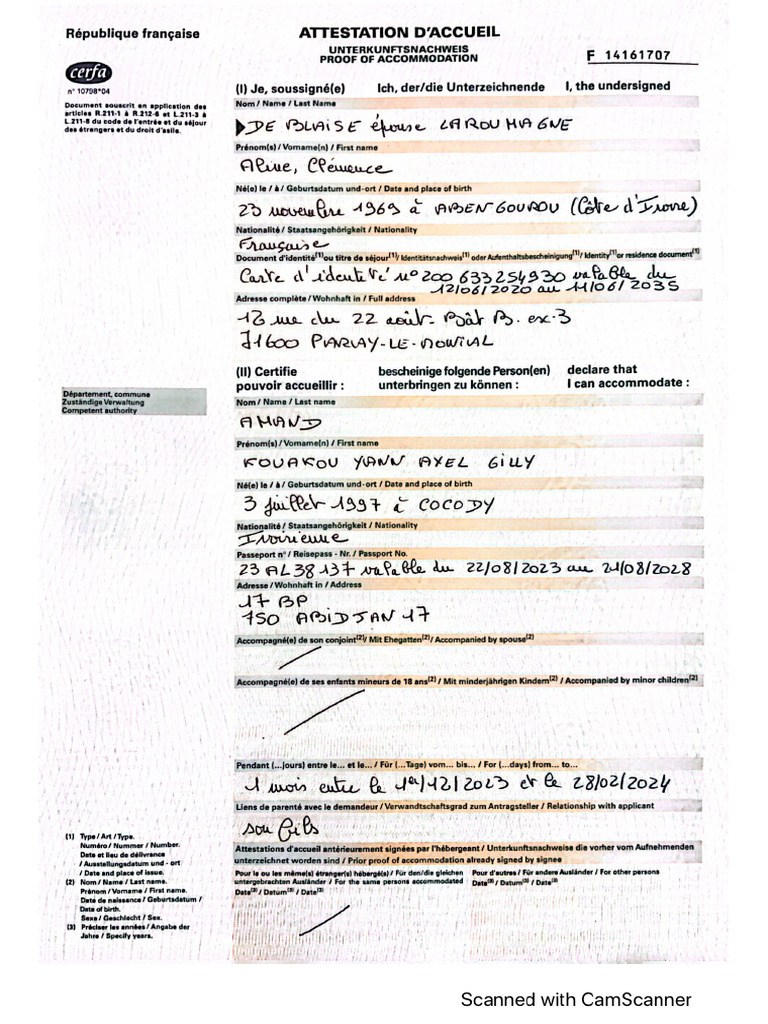 République française
ATTESTATION D'ACCUEIL
UNTERKUNFTSNACHWEIS
PROOF OF ACCOMMODATION
F 14161707
cerfa
n° 10798*04
Document souscrit en application des
articles R.211-1 à R.212-6 et L.211-3 à
L.211-8 du code de l'entrée et du séjour
des étrangers et du droit d'asile.
(I) Je, soussigné(e) Ich, der/die Unterzeichnende I, the undersigned
Nom / Name / Last Name
DE BLAISE épouse LAROUMAGNE
Prénom(s) / Vorname(n) / First name
Aline, Clémence
Né(e) le / à / Geburtsdatum und-ort / Date and place of birth
23 novembre 1969 à ABENGOUROU (Côte d'Ivoire)
Nationalité / Staatsangehörigkeit / Nationality
Française
Document d'identité(1) ou titre de séjour(1)/ Identitätsnachweis(1) oder Aufenthaltsbescheinigung(1)/ Identity(1) or residence document(1)
Carte d'identité n° 200 633254930 valable du
12/06/2020 au 11/06/2035
Adresse complète / Wohnhaft in / Full address
12 rue du 22 août - Bât B. ex.3
71600 PARAY-LE-MONIAL
(II) Certifie bescheinige folgende Person(en) declare that
pouvoir accueillir : unterbringen zu können : I can accommodate :
Département, commune
Zuständige Verwaltung
Competent authority
Nom / Name / Last name
AMAND
Prénom(s) / Vorname(n) / First name
KOUAKOU YANN AXEL GILLY
Né(e) le / à / Geburtsdatum und-ort / Date and place of birth
3 juillet 1997 à COCODY
Nationalité / Staatsangehörigkeit / Nationality
Ivoirienne
Passeport n° / Reisepass - Nr. / Passport No.
23 AL 38 137 valable du 22/08/2023 au 21/08/2028
Adresse / Wohnhaft in / Address
17 BP
750 ABIDJAN 17
Accompagné(e) de son conjoint(2)/ Mit Ehegatten(2)/ Accompanied by spouse(2)
Accompagné(e) de ses enfants mineurs de 18 ans(2) / Mit minderjährigen Kindern(2) / Accompanied by minor children(2)
Pendant (...jours) entre le... et le... / Für (...Tage) vom... bis... / For (...days) from... to...
1 mois entre le 1er/12/2023 et le 28/02/2024
Liens de parenté avec le demandeur / Verwandtschaftsgrad zum Antragsteller / Relationship with applicant
son fils
Attestations d'accueil antérieurement signées par l'hébergeant / Unterkunftsnachweise die vorher vom Aufnehmenden
unterzeichnet worden sind / Prior proof of accommodation already signed by signee
Pour le ou les même(s) étranger(s) hébergé(s) / Für den/die gleichen
untergebrachten Ausländer / For the same persons accommodated
Date(3) / Datum(3) / Date(3)
Pour d'autres / Für andere Ausländer / For other persons
Date(3) / Datum(3) / Date(3)
(1) Type / Art / Type.
Numéro / Nummer / Number.
Date et lieu de délivrance
/ Ausstellungsdatum und - ort
/ Date and place of issue.
(2) Nom / Name / Last name.
Prénom / Vorname / First name.
Date de naissance / Geburtsdatum /
Date of birth.
Sexe / Geschlecht / Sex.
(3) Préciser les années / Angabe der
Jahre / Specify years.
Scanned with CamScanner